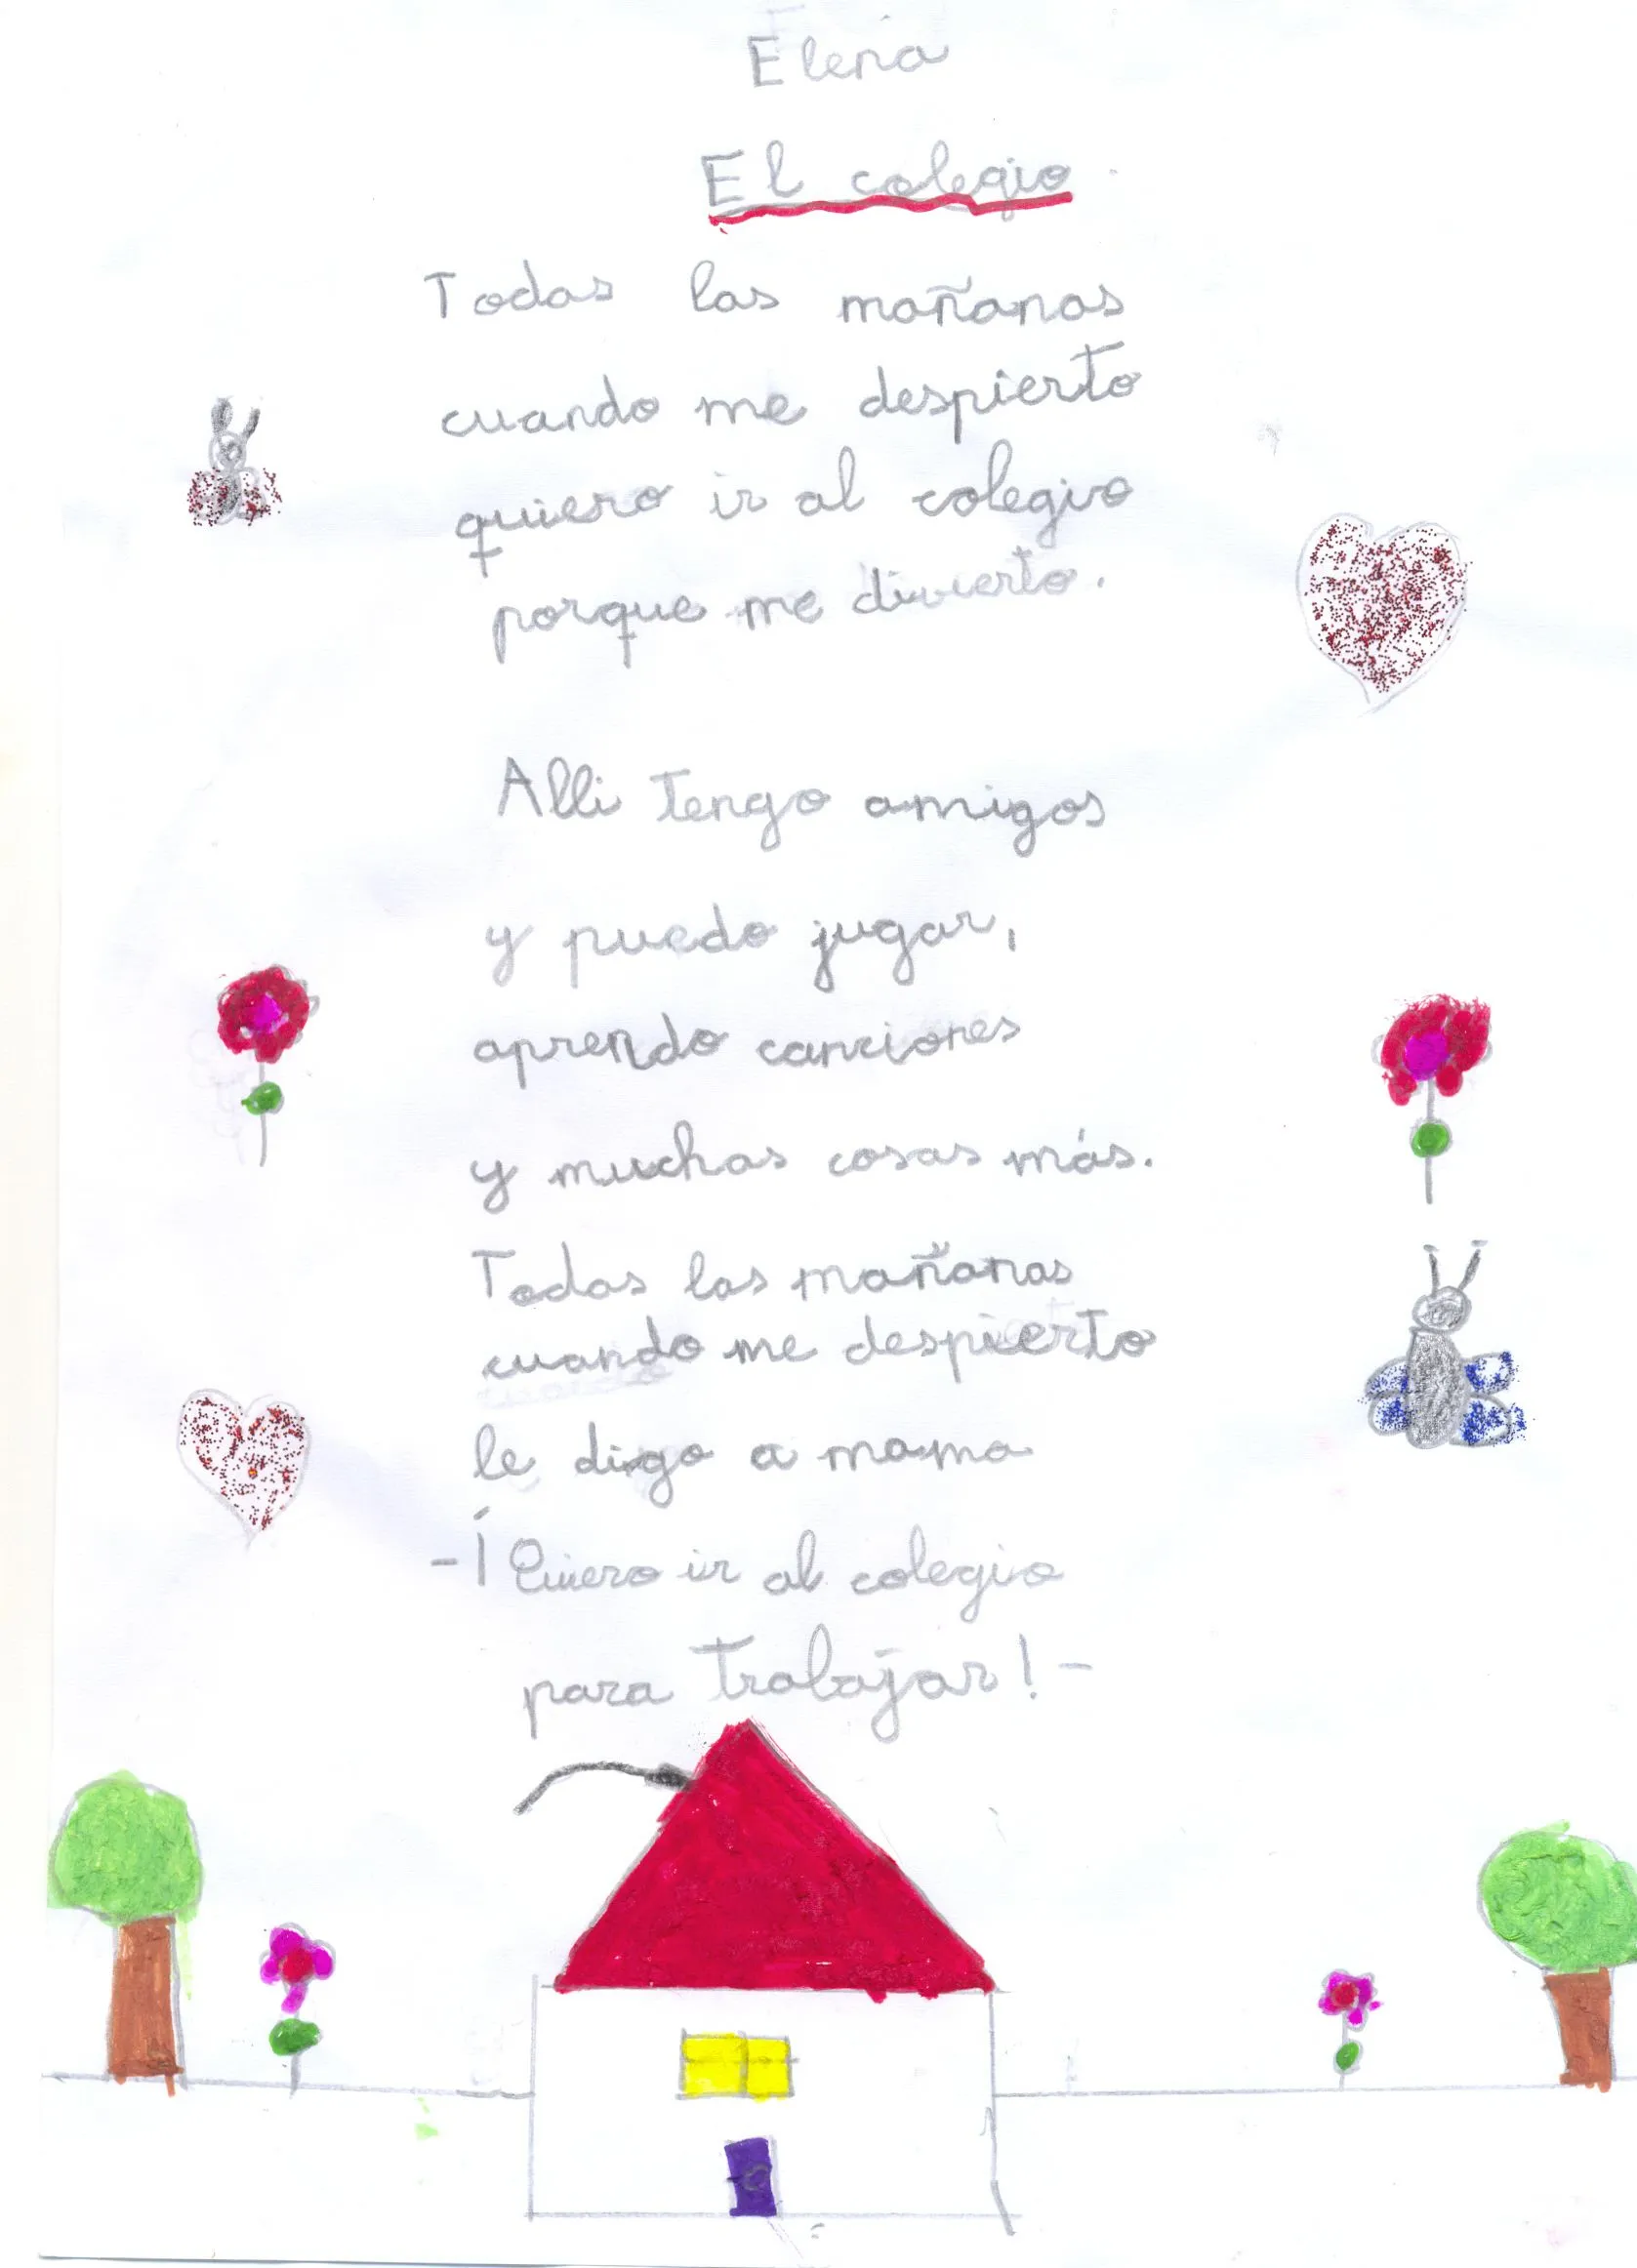 Elena
El colegio
Todas las mañanas
cuando me despierto
quiero ir al colegio
porque me divierto.
Alli tengo amigos
y puedo jugar,
aprendo canciones
y muchas cosas más.
Todas las mañanas
cuando me despierto
le digo a mama
-¡Quiero ir al colegio
para trabajar!-